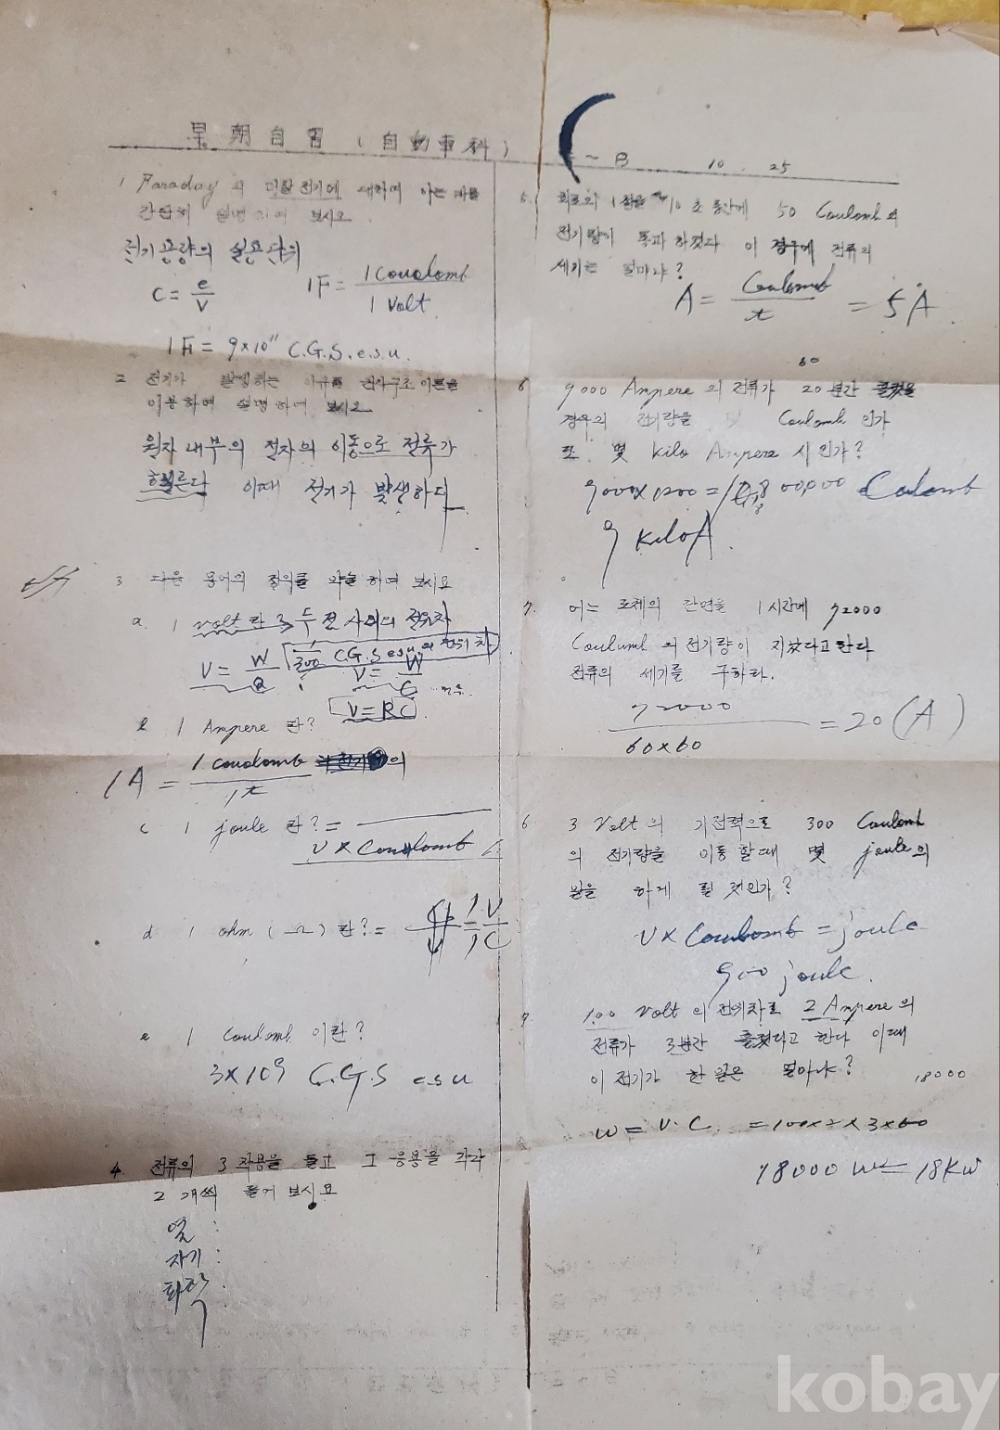 早朝自習 (自動車科)
~ B 10. 25
1 Faraday 의 전기에 대하여 아는 대로
간단히 설명하여 보시오
전기용량의 실용단위
C = e/V 1F = 1 Coudomb / 1 Volt.
1F = 9×10¹¹ C.G.S.e.s.u.
2 전기가 발생하는 이유를 전자구조 이론을
이용하여 설명하여 보시오
원자 내부의 전자의 이동으로 전류가
흐른다 이때 전기가 발생하다
3 다음 용어의 정의를 하여 보시오
a. 1 volt 란 3 두 점 사이의 전위차
V = W/Q 1/300 C.G.S esu의 전위차 V = W/C
V = RC
b 1 Ampere 란?
1A = 1 coudomb / 1t 의
c 1 joule 란? =
V × Coudomb
d 1 ohm (Ω) 란? = 1V / 1C
e 1 Coulomb 이란?
3×10⁹ C.G.S esu
4. 전류의 3 작용을 들고 그 응용을 각각
2 개씩 들어 보시오
열 :
자기 :
화학 :
5. 회로의 1점을 10 초 동안에 50 Coulomb의
전기량이 통과 하였다 이 경우에 전류의
세기는 얼마냐?
A = Coulomb / t = 5A.
60
6 9000 Ampere 의 전류가 20 분간 흘렀을
경우의 전기량은 몇 Coulomb 인가
또 몇 kilo Ampere 시 인가?
9000×1200 = 00,000 Calomb
9 kiloA.
7. 어느 도체의 단면을 1시간에 72000
Coulumb 의 전기량이 지났다고 한다
전류의 세기를 구하라.
72000 / 60×60 = 20 (A)
6 3 Volt 의 기전력으로 300 Coulomb
의 전기량을 이동 할때 몇 joule의
일을 하게 될 것인가?
V× Coulomb = joule
900 joule.
9 100 Volt 의 전위차로 2 Ampere의
전류가 3분간 흘렀다고 한다 이때
이 전기가 한 일은 얼마냐? 18000
W = V.C. = 100×2×3×60
18000 W = 18KW
kobay